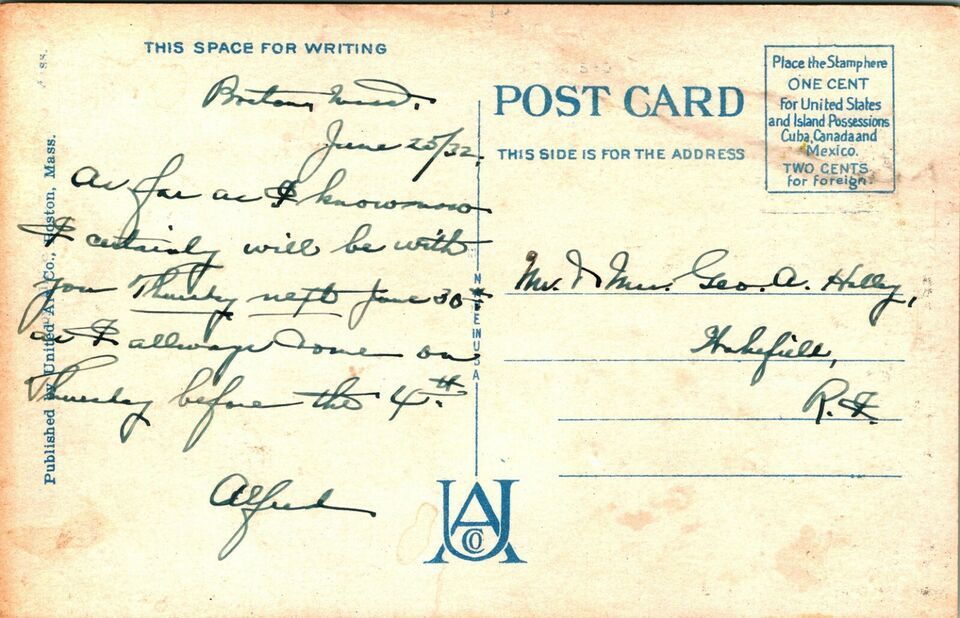 THIS SPACE FOR WRITING
Boston, Mass.
June 25/32.
As far as I know now
I certainly will be with
you Thursday next June 30th
as I allways come on
Thursday before the 4th.
Alfred
Published by United Art Co., Boston, Mass.
MADE IN U.S.A.
POST CARD
THIS SIDE IS FOR THE ADDRESS
Place the Stamp here
ONE CENT
For United States
and Island Possessions
Cuba, Canada and
Mexico.
TWO CENTS
for Foreign.
Mr. & Mrs. Geo. A.
Wakefield,
R.I.
UACO